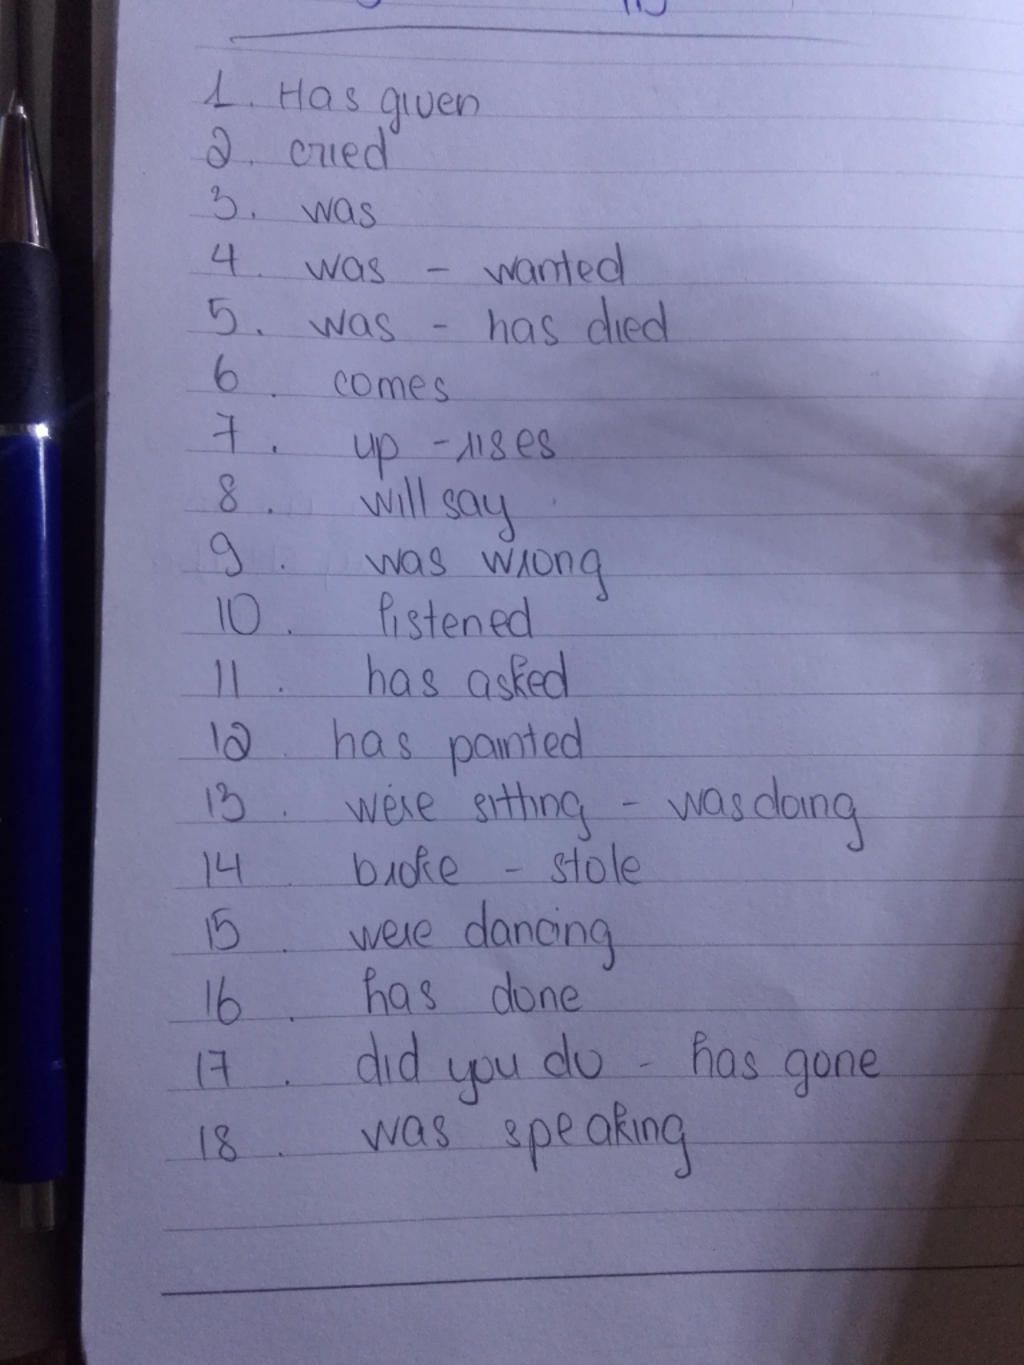 1. Has given
2. cried
3. was
4. was - wanted
5. was - has died
6. comes
7. up - rises
8. will say
9. was wrong
10. listened
11. has asked
12. has painted
13. were sitting - was doing
14. broke - stole
15. were dancing
16. has done
17. did you do - has gone
18. was speaking